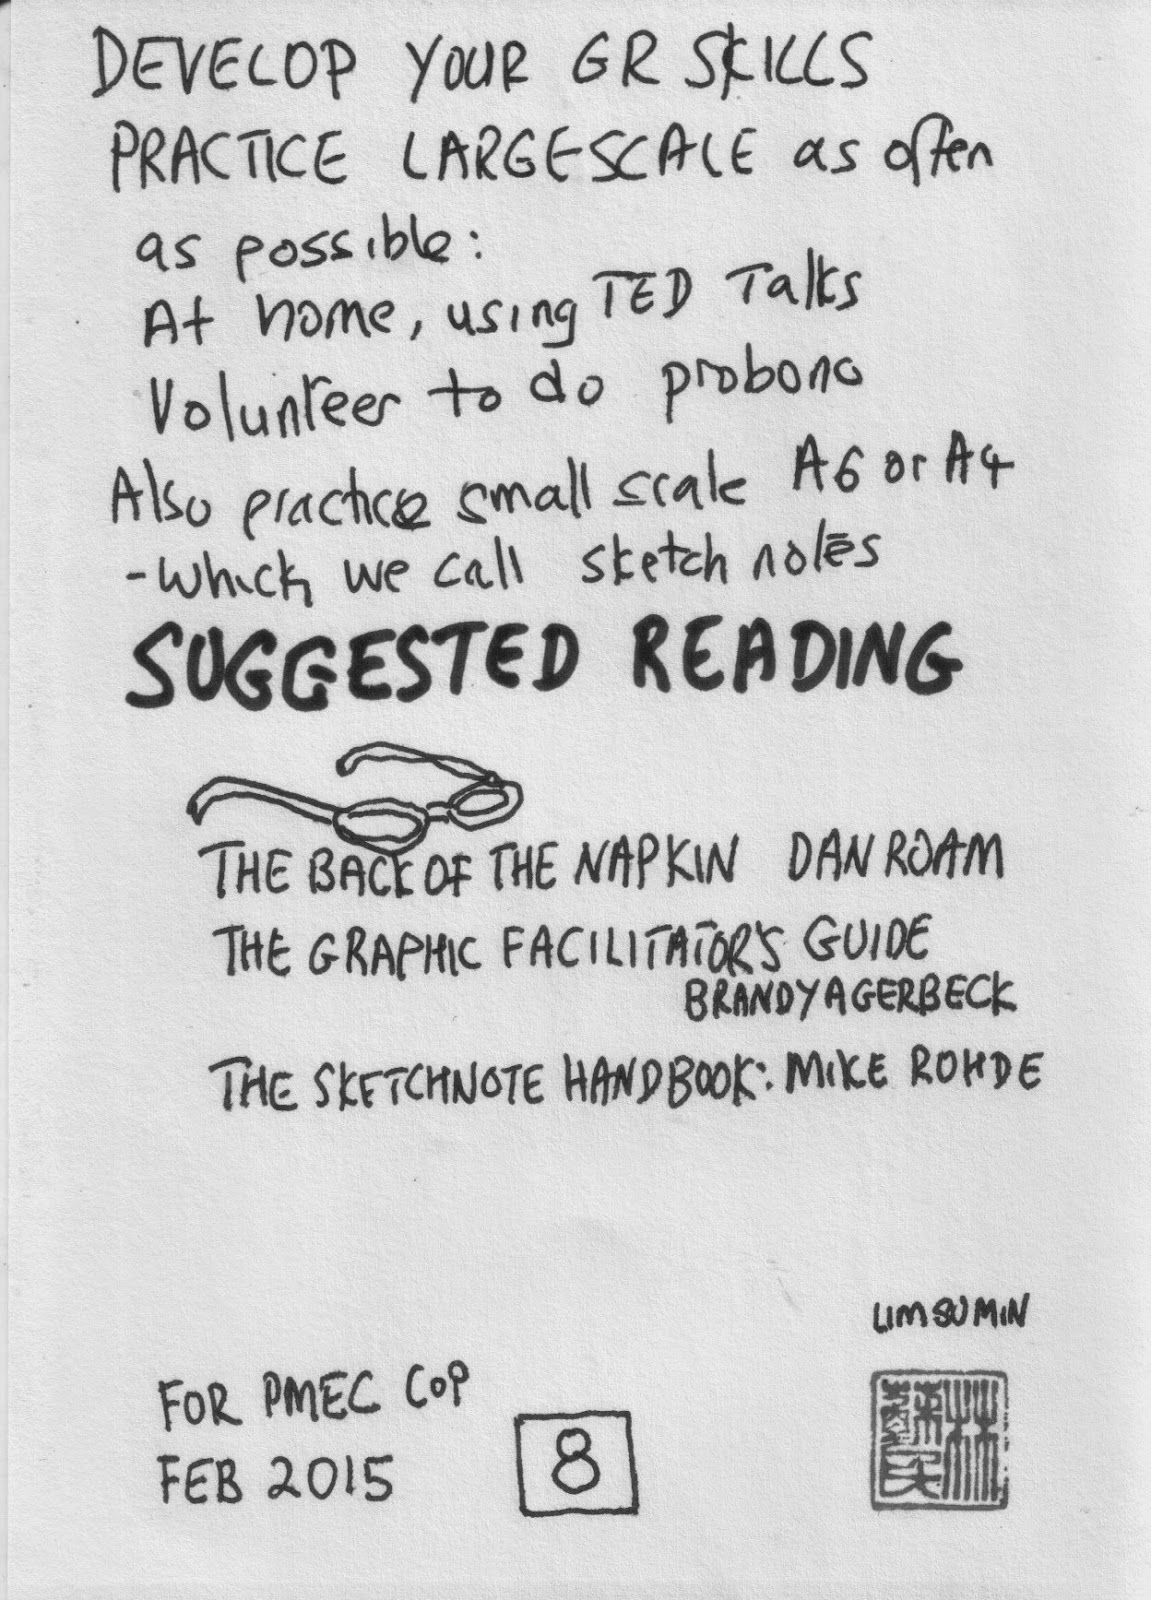 DEVELOP YOUR GR SKILLS
PRACTICE LARGESCALE as often
as possible:
At home, using TED Talks
Volunteer to do probono
Also practice small scale A6 or A4
- which we call sketch notes
SUGGESTED READING
THE BACK OF THE NAPKIN DAN ROAM
THE GRAPHIC FACILITATOR'S GUIDE
BRANDY AGERBECK
THE SKETCHNOTE HANDBOOK: MIKE ROHDE
LIM SU MIN
FOR PMEC CoP
FEB 2015
8
林
民